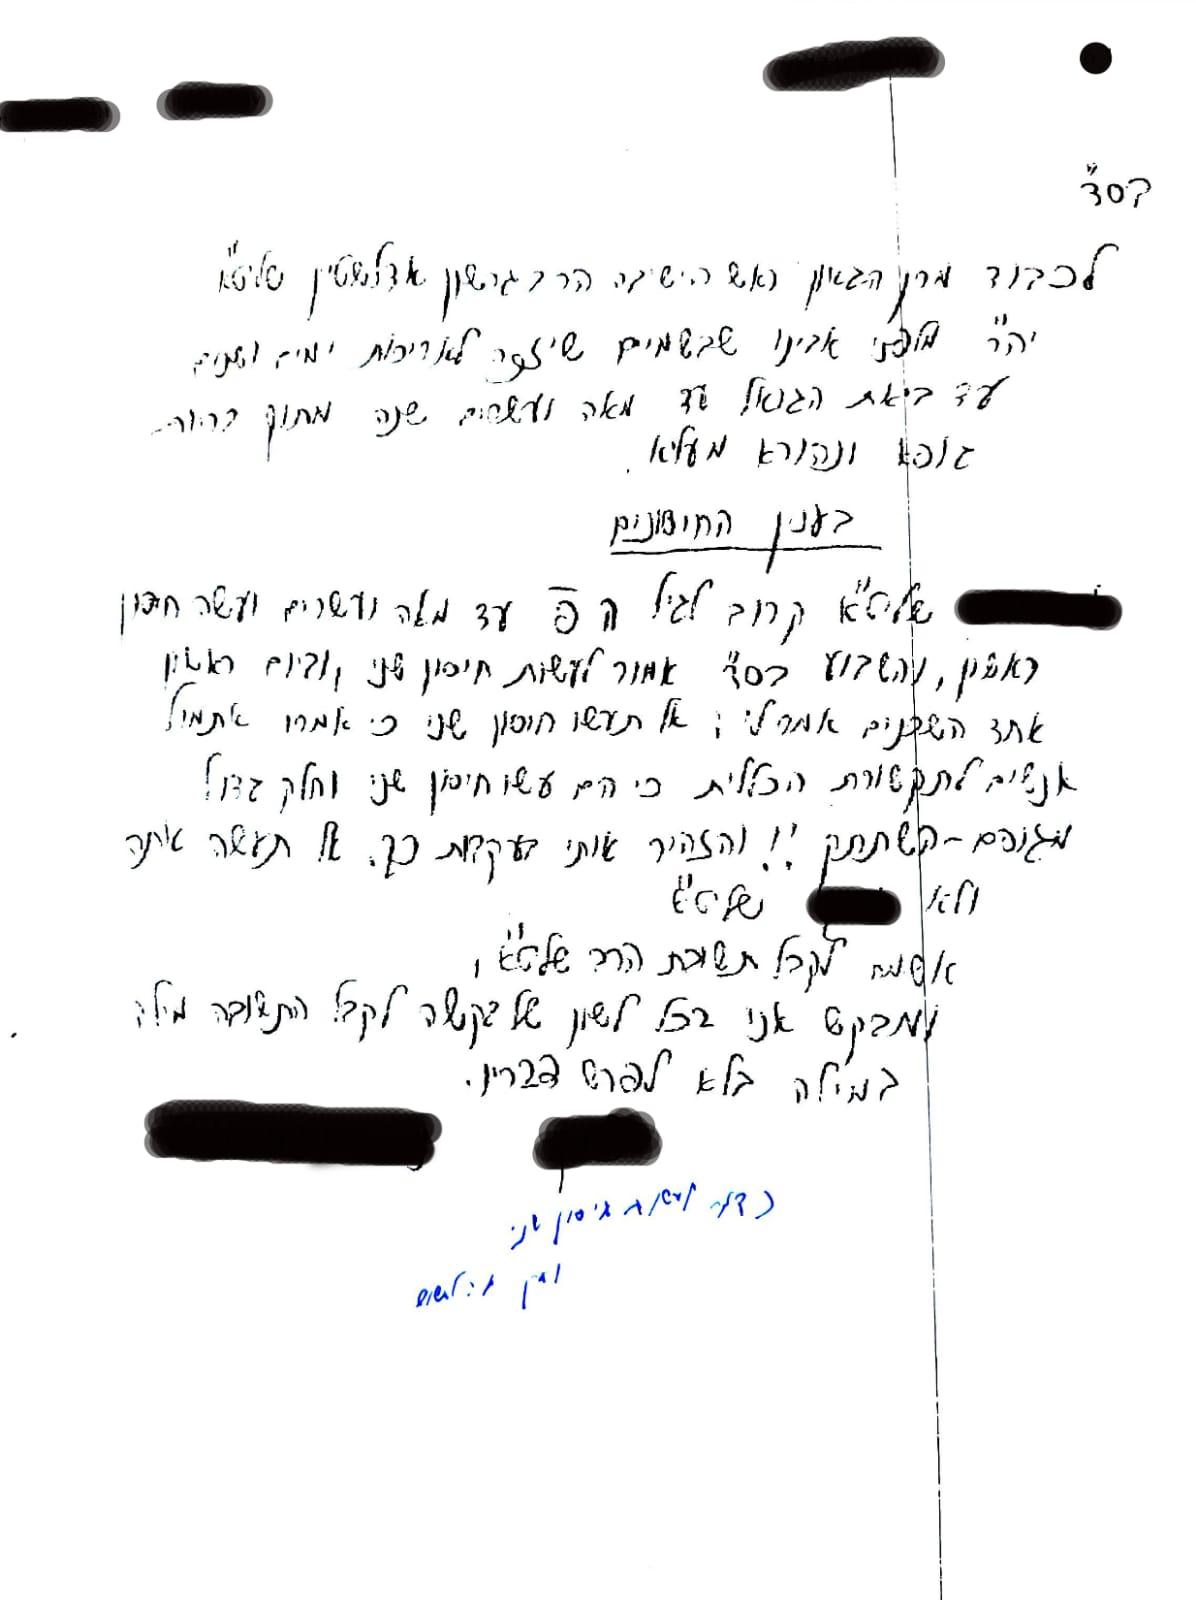 בסד"
לכבוד מרן הגאון ראש הישיבה הרב גרשון אדלשטין שליט"א
יה"ר מלפני אבינו שבשמים שיזכה לאריכות ימים ושנים
עד ביאת הגואל עד מאה ועשרים שנה מתוך בריות
גופא ונהורא מעליא.
בענין החיסונים
שליט"א קרוב לגיל ה פ עד מאה ועשרים ועשה חיסון
ראשון, והשבוע בסד" אמור לעשות חיסון שני, וביום ראשון
אחד השכנים אמר לי; אל תעשו חיסון שני כי אמרו אתמול
אנשים לתקשורת הכללית כי הם עשו חיסון שני וחלק גדול
מגופם - השתתק !! והזהיר אותי בעקבות כך. אל תעשה אתה
ולא שליט"א
אשמח לקבל תשובת הרב שליט"א,
ומבקש אני בכל לשון של בקשה לקבל התשובה מילה
במילה בלא לפרש דברינו.
כדאי לעשות חיסון שני
ואין לחשוש